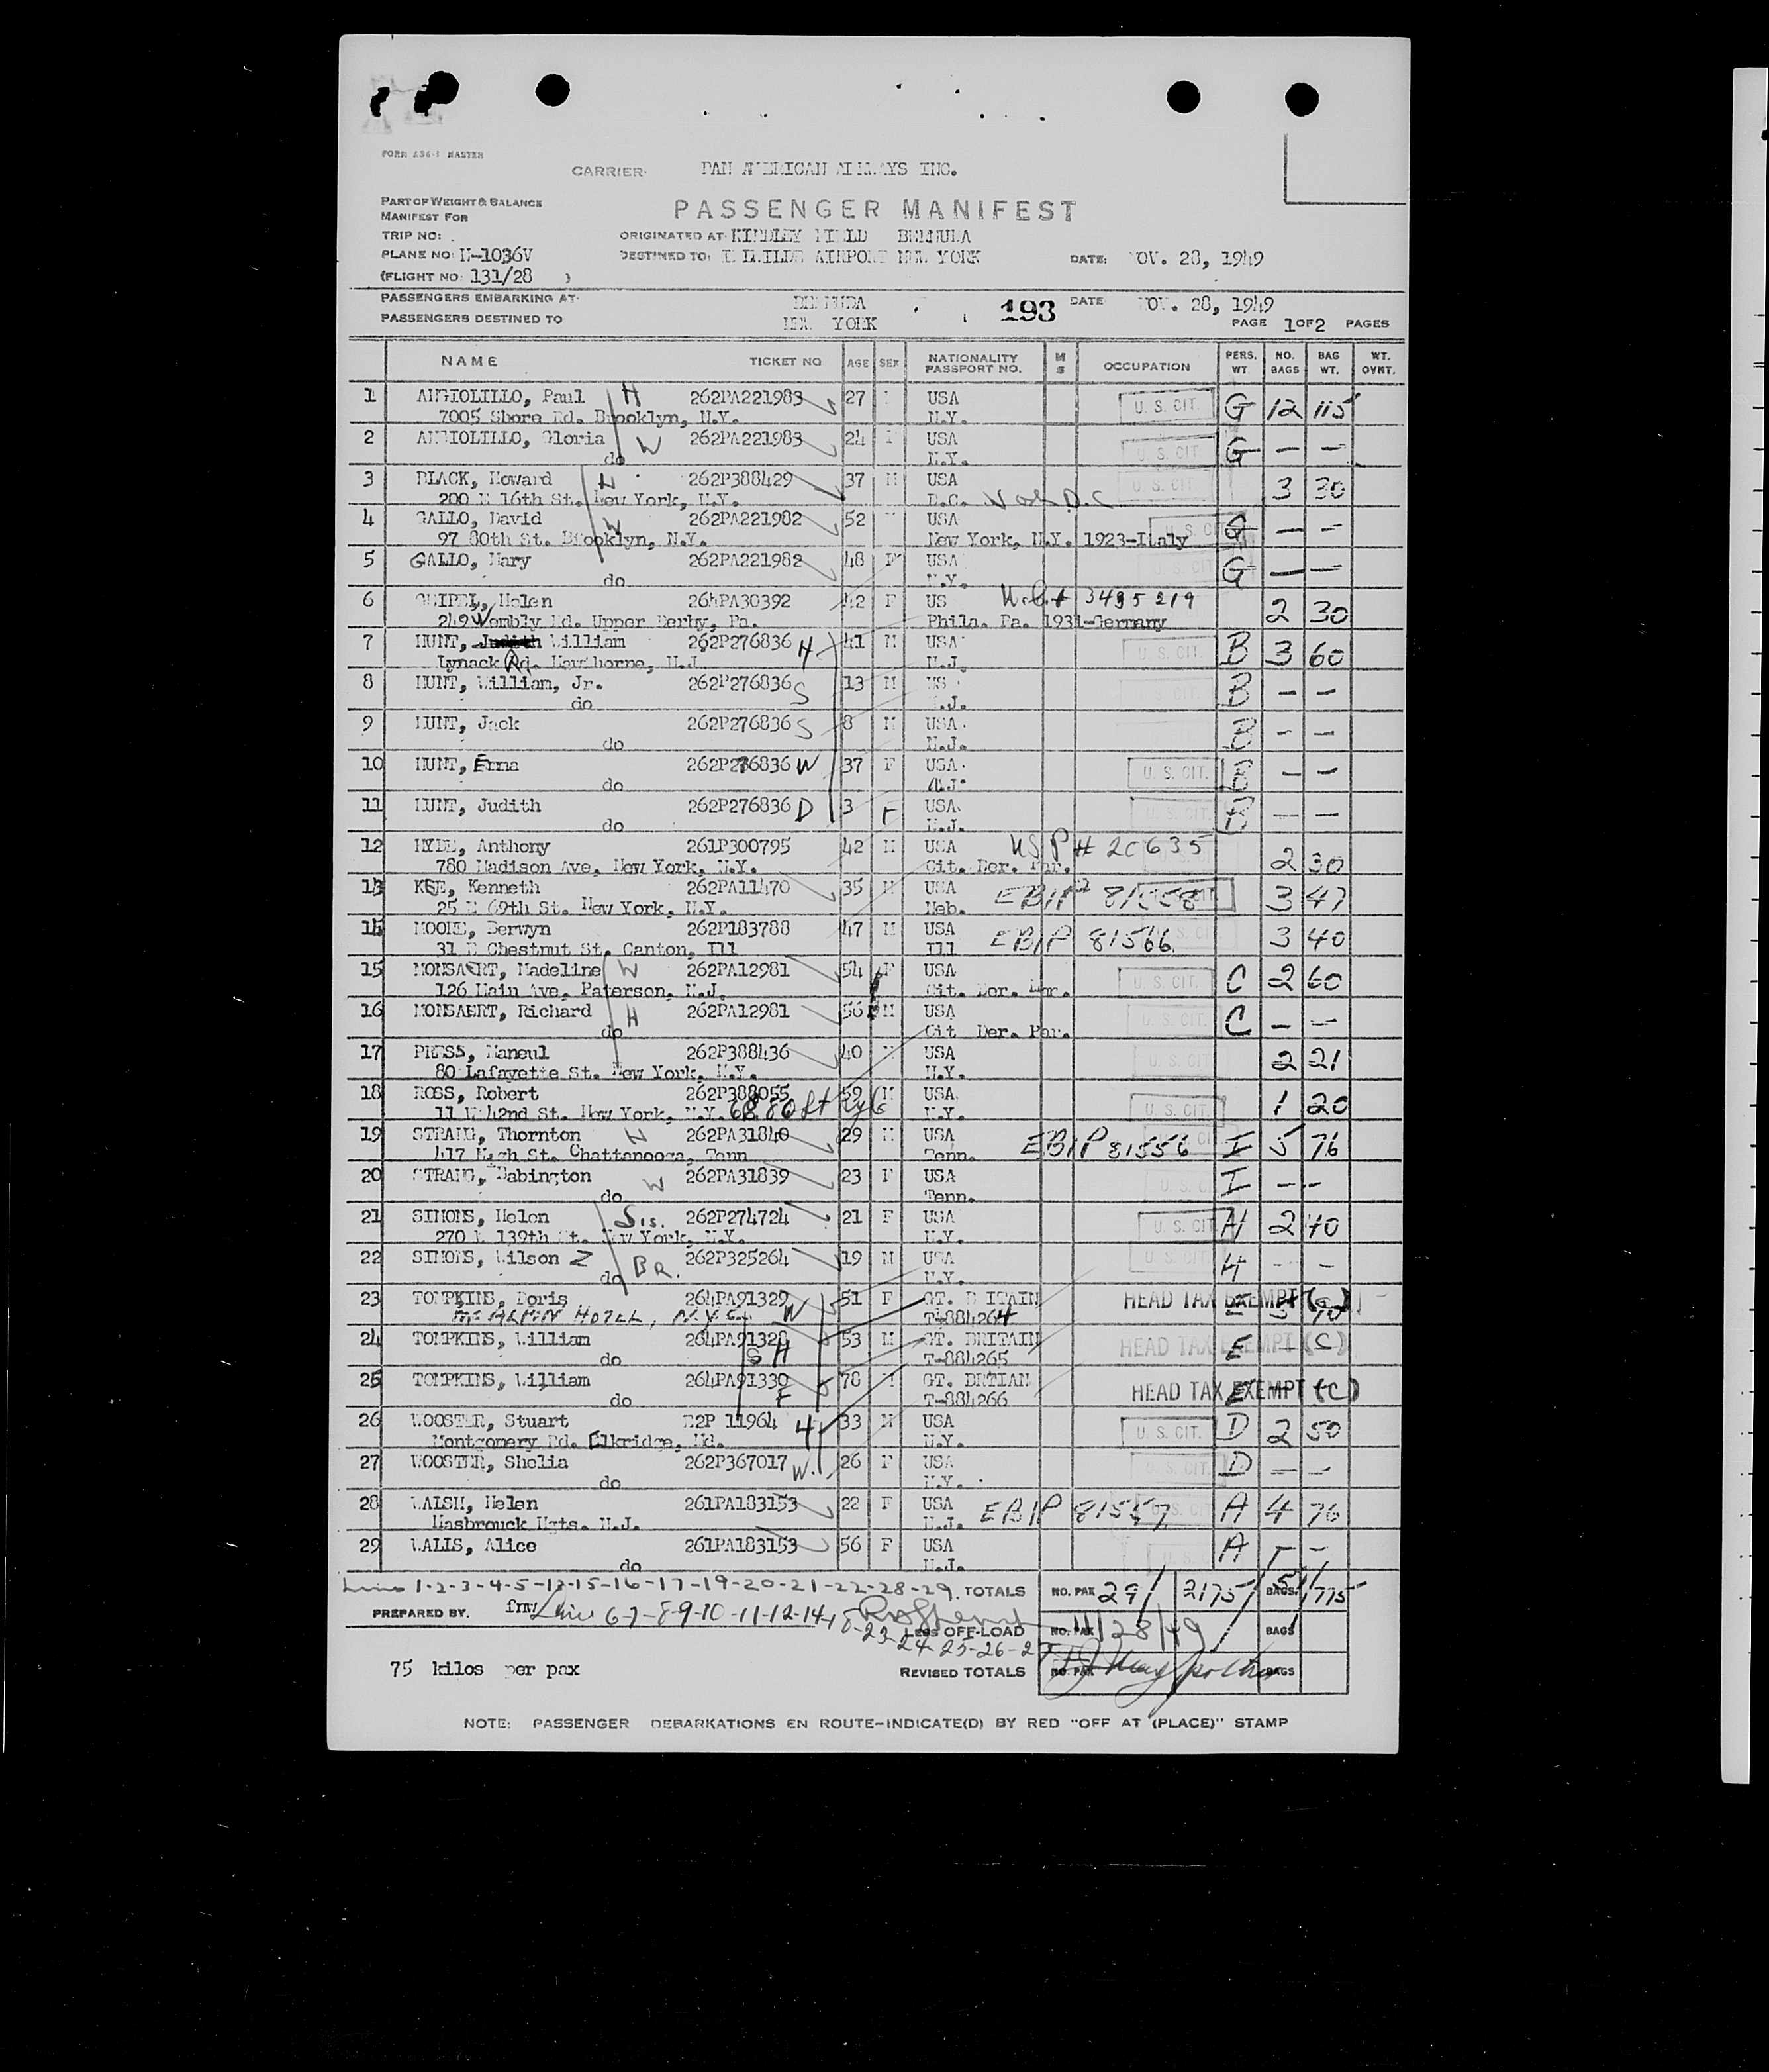 FORM 236-1 MASTER
CARRIER: PAN AMERICAN AIRWAYS INC.
PART OF WEIGHT & BALANCE
MANIFEST FOR
PASSENGER MANIFEST
TRIP NO: .
ORIGINATED AT: KINDLEY FIELD BERMUDA
PLANE NO: N-1036V
DESTINED TO: IDLEWILDE AIRPORT NEW YORK
DATE: NOV. 28, 1949
(FLIGHT NO: 131/28 )
PASSENGERS EMBARKING AT: BERMUDA
193
DATE NOV. 28, 1949
PASSENGERS DESTINED TO NEW YORK
PAGE 1 OF 2 PAGES
NAME TICKET NO AGE SEX NATIONALITY PASSPORT NO. M S OCCUPATION PERS. WT. NO. BAGS BAG WT. WT. OVNT.
1 ANGIOLILLO, Paul H 262PA221983 27 USA U. S. CIT. G 12 115
7005 Shore Rd. Brooklyn, N.Y. N.Y.
2 ANGIOLILLO, Gloria W 262PA221983 24 F USA U. S. CIT G — —
do N.Y.
3 BLACK, Howard 262P388429 37 M USA U. S. CIT 3 30
200 E 16th St. New York, N.Y. D.C.
4 GALLO, David 262PA221982 52 M USA U. S. CIT G — —
97 80th St. Brooklyn, N.Y. New York, N.Y. 1923-Italy
5 GALLO, Mary 262PA221982 48 F USA U. S. CIT G — —
do N.Y.
6 GEIPEL, Helen 264PA30392 42 F US 3495219 2 30
249 Wembly Rd. Upper Derby, Pa. Phila. Pa. 1931-Germany
7 HUNT, William 262P276836 H 41 M USA U. S. CIT. B 3 60
Lynack Rd. Hawthorne, N.J. N.J.
8 HUNT, William, Jr. 262P276836 S 13 M US B — —
do N.J.
9 HUNT, Jack 262P276836 S 8 M USA B — —
do N.J.
10 HUNT, Erna 262P276836 W 37 F USA U. S. CIT. B — —
do N.J.
11 HUNT, Judith 262P276836 D 3 F USA U. S. CIT. B — —
do N.J.
12 HYDE, Anthony 261P300795 42 M USA US P# 20635 2 30
780 Madison Ave. New York, N.Y. Cit. Der. Par.
13 KEE, Kenneth 262PA11470 35 M USA EBIP 81558 3 47
25 E 69th St. New York, N.Y. Neb.
14 MOORE, Berwyn 262P183788 47 M USA EBIP 81566 3 40
31 E Chestnut St. Canton, Ill Ill
15 MONSAERT, Madeline W 262PA12981 54 F USA U. S. CIT. C 2 60
126 Main Ave. Paterson, N.J. Cit. Der. Mar.
16 MONSAERT, Richard H 262PA12981 56 M USA U. S. CIT. C — —
do Cit Der. Par.
17 PRESS, Maneul 262P388436 40 M USA U. S. CIT 2 21
80 Lafayette St. New York, N.Y. N.Y.
18 ROSS, Robert 262P388055 59 M USA U. S. CIT. 1 20
11 W 42nd St. New York, N.Y. N.Y.
19 STRANG, Thornton 262PA31840 29 M USA EBIP 81556 I 5 76
417 High St. Chattanooga, Tenn Tenn.
20 STRANG, Babington W 262PA31839 23 F USA U. S. C I — —
do Tenn.
21 SIMONS, Helen Sis. 262P274724 21 F USA U. S. CIT H 2 40
270 E 139th St. New York, N.Y. N.Y.
22 SIMONS, Wilson Z BR. 262P325264 19 M USA U. S. CIT H — —
do N.Y.
23 TOMPKINS, Doris 264PA91329 W 51 F GT. BRITAIN HEAD TAX EXEMPT (C) E
McALPIN HOTEL, N.Y.C. T-884264
24 TOMPKINS, William 264PA91328 H 53 M GT. BRITAIN HEAD TAX EXEMPT (C) E
do T-884265
25 TOMPKINS, William 264PA91330 F 78 M GT. BRTIAN HEAD TAX EXEMPT (C) E
do T-884266
26 WOOSTER, Stuart 11964 H 33 M USA U. S. CIT. D 2 50
Montgomery Rd. Elkridge, Md. N.Y.
27 WOOSTER, Shelia 262P367017 W. 26 F USA U. S. CIT. D — —
do N.Y.
28 WALSH, Helen 261PA183153 22 F USA EBIP 81557 A 4 76
Hasbrouck Hgts. N.J. N.J.
29 WALLS, Alice 261PA183153 56 F USA U. S. A — —
do N.J.
Lines 1-2-3-4-5-13-15-16-17-19-20-21-22-28-29. TOTALS NO. PAX 29 2175 BAGS 51 775
PREPARED BY. fmw Lines 6-7-8-9-10-11-12-14-18-23-24-25-26-27
LESS OFF-LOAD NO. PAX 11/28/49 BAGS
75 kilos per pax REVISED TOTALS NO. PAX BAGS
NOTE: PASSENGER DEBARKATIONS EN ROUTE-INDICATE(D) BY RED "OFF AT (PLACE)" STAMP